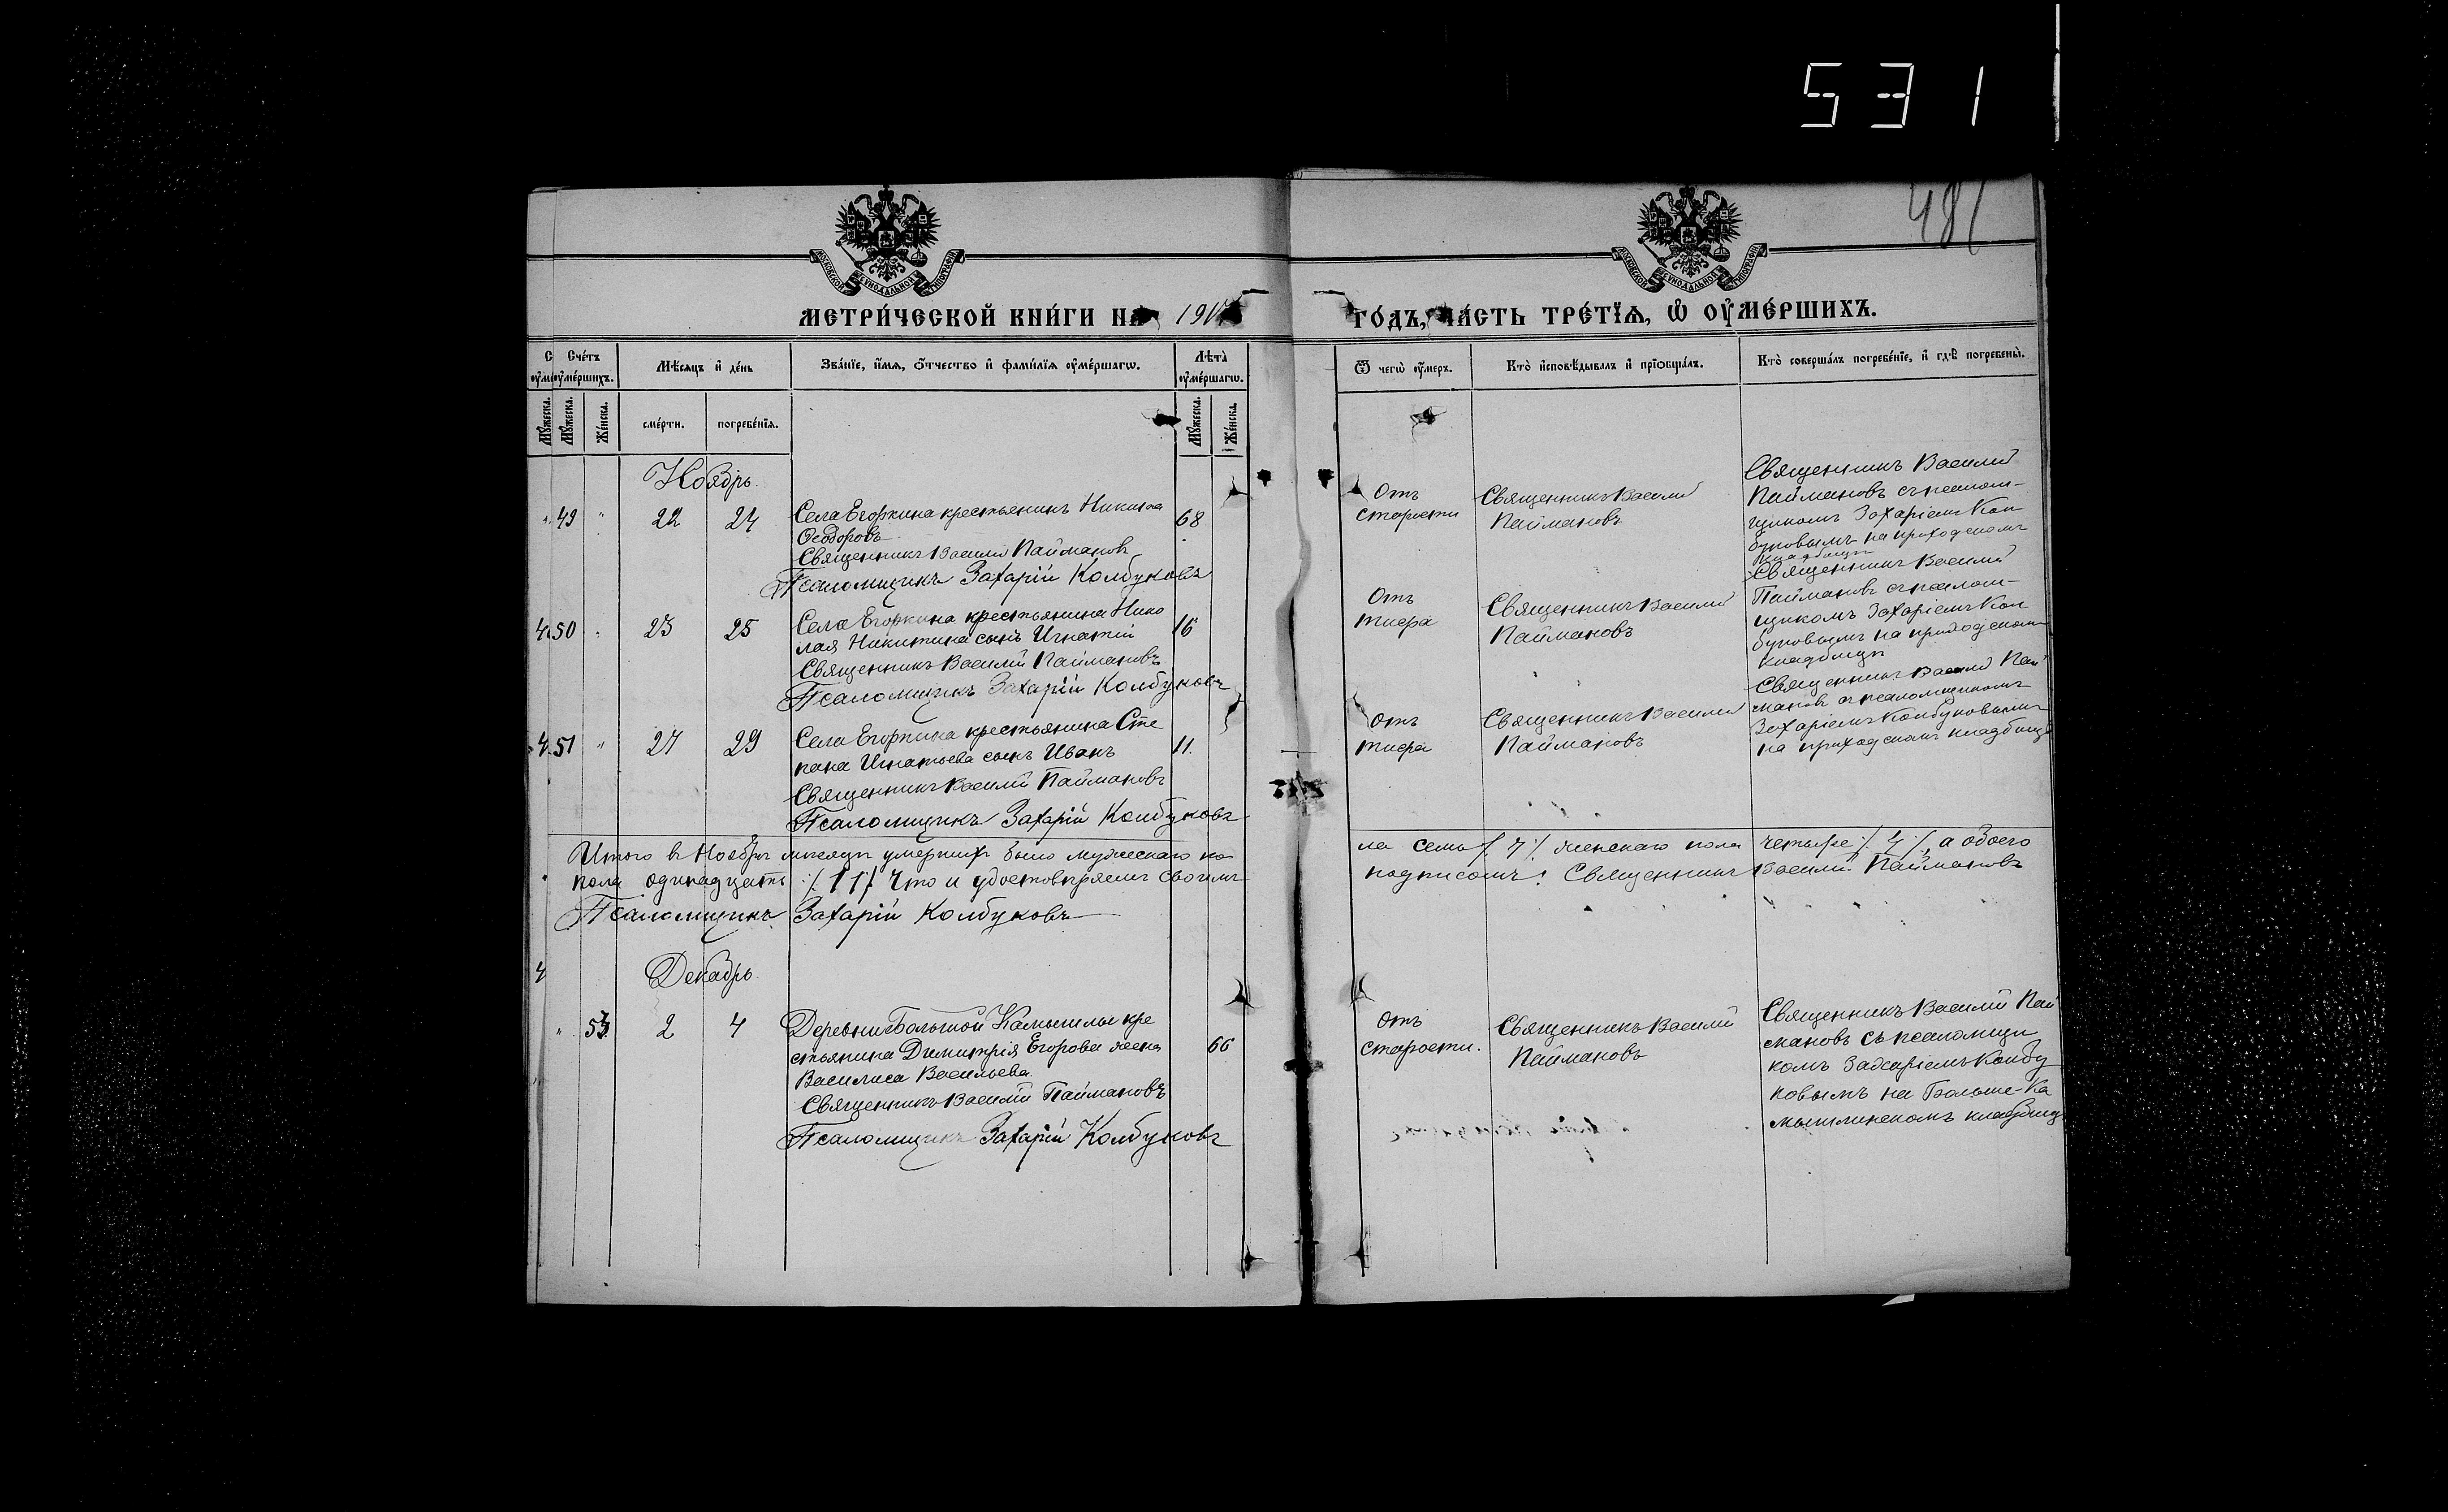 531
481
МОСКОВСКОЙ СѴНОДАЛЬНОЙ ТИПОГРАФІИ
МОСКОВСКОЙ СѴНОДАЛЬНОЙ ТИПОГРАФІИ
МЕТРИ́ЧЕСКОЙ КНИ́ГИ НА
ГО́ДЪ, ЧА́СТЬ ТРЕ́ТЇѦ, Ѡ҆ ОУ҆МЕ́РШИХЪ.
Сче́тъ оу҆ме́ршихъ.
Мѣ́сѧцъ и҆ де́нь
Зва́нїе, и҆́мѧ, ѻ҆́тчество и҆ фами́лїѧ оу҆ме́ршагѡ.
Лѣ́та̀ оу҆ме́ршагѡ.
Ѿ чегѡ̀ оу҆́меръ.
Кто̀ и҆сповѣ́дывалъ и҆ прїѡбща́лъ.
Кто̀ соверша́лъ погребе́нїе, и҆ гдѣ̀ погребены̀.
Мꙋ́жеска.
Мꙋ́жеска.
Же́нска.
сме́рти.
погребе́нїѧ.
Мꙋ́жеска.
Же́нска.
Ноябрь.
49 " 22 24
Села Егоркина крестьянинъ Никита
Ѳеодоровъ
68
Священникъ Василій Паймановъ
Псаломщикъ Захарій Колбуковъ
Отъ
старости
Священникъ Василій
Паймановъ
Священникъ Василій
Паймановъ съ псалом-
щикомъ Захаріемъ Кол
буковымъ на приходскомъ
кладбищѣ
50 23 25
Села Егоркина крестьянина Нико
лая Никитина сынъ Игнатій
16
Священникъ Василій Паймановъ
Псаломщикъ Захарій Колбуковъ
Отъ
тифа
Священникъ Василій
Паймановъ
Священникъ Василій
Паймановъ съ псалом-
щикомъ Захаріемъ Кол
буковымъ на приходскомъ
кладбищѣ
51 " 27 29
Села Егоркина крестьянина Сте
пана Игнатьева сынъ Иванъ
11.
Священникъ Василій Паймановъ
Псаломщикъ Захарій Колбуковъ
Отъ
тифа
Священникъ Василій
Паймановъ
Священникъ Василій Пай
мановъ съ псаломщикомъ
Захаріемъ Колбуковымъ
на приходскомъ кладбищѣ
Итого въ Ноябрѣ мѣсяцѣ умершихъ было мужескаго по
ла семь ./. 7 ./. женскаго пола четыре ./. 4 ./., а обоего
пола одинадцать ./. 11 ./. Что и удостовѣряемъ своимъ
подписомъ: Священникъ Василій Паймановъ
Псаломщикъ Захарій Колбуковъ
Декабрь.
" 2 4
Деревни Большой Камышлы кре
стьянина Димитрія Егорова жена
Василиса Васильева.
66
Священникъ Василій Паймановъ
Псаломщикъ Захарій Колбуковъ
Отъ
старости.
Священникъ Василій
Паймановъ
Священникъ Василій Пай
мановъ съ псаломщи
комъ Захаріемъ Колбу
ковымъ на Больше-Ка
мышлинскомъ кладбищѣ